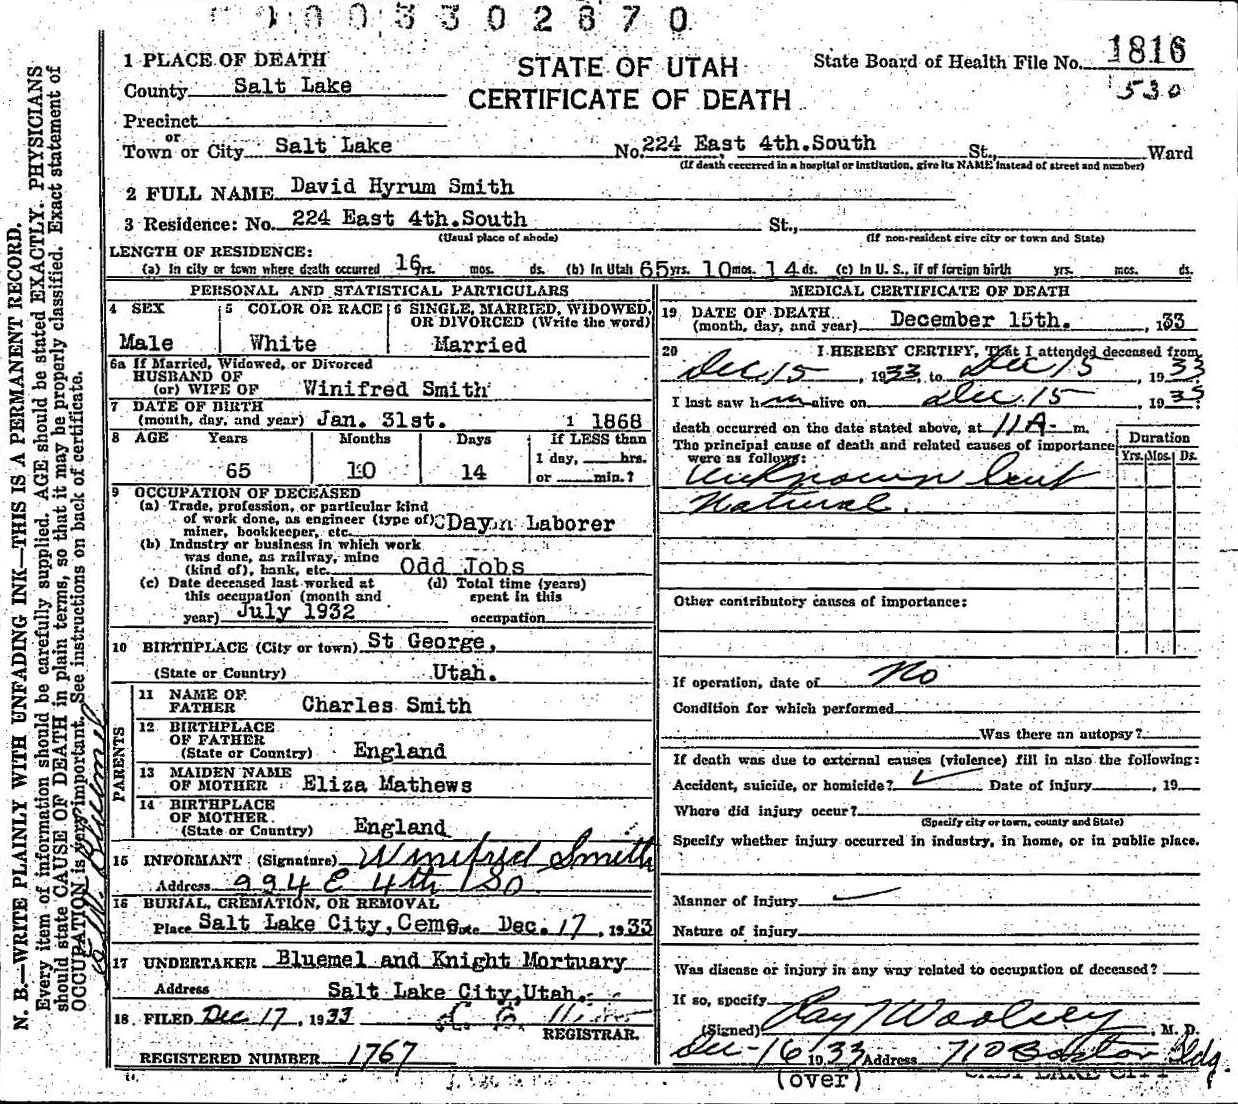 003302870
STATE OF UTAH
CERTIFICATE OF DEATH
State Board of Health File No. 1816
530
1 PLACE OF DEATH
County Salt Lake
Precinct
or
Town or City Salt Lake No. 224 East 4th.South St., Ward
(If death occurred in a hospital or institution, give its NAME instead of street and number)
2 FULL NAME David Hyrum Smith
3 Residence: No. 224 East 4th.South St.,
(Usual place of abode) (If non-resident give city or town and State)
LENGTH OF RESIDENCE:
(a) In city or town where death occurred 16 yrs. mos. ds. (b) In Utah 65 yrs. 10 mos. 14 ds. (c) In U. S., if of foreign birth yrs. mos. ds.
PERSONAL AND STATISTICAL PARTICULARS
4 SEX
Male
5 COLOR OR RACE
White
6 SINGLE, MARRIED, WIDOWED,
OR DIVORCED (Write the word)
Married
6a If Married, Widowed, or Divorced
HUSBAND OF
(or) WIFE OF Winifred Smith
7 DATE OF BIRTH
(month, day, and year) Jan. 31st. 1 1868
8 AGE Years Months Days If LESS than
1 day, hrs.
65 10 14 or min.?
9 OCCUPATION OF DECEASED
(a) Trade, profession, or particular kind
of work done, as engineer (type of)
miner, bookkeeper, etc. Day Laborer
(b) Industry or business in which work
was done, as railway, mine
(kind of), bank, etc. Odd Jobs
(c) Date deceased last worked at
this occupation (month and
year) July 1932
(d) Total time (years)
spent in this
occupation
10 BIRTHPLACE (City or town) St George,
(State or Country) Utah.
PARENTS
11 NAME OF
FATHER Charles Smith
12 BIRTHPLACE
OF FATHER
(State or Country) England
13 MAIDEN NAME
OF MOTHER Eliza Mathews
14 BIRTHPLACE
OF MOTHER
(State or Country) England
15 INFORMANT (Signature) Winefred Smith
Address 224 E 4th So.
16 BURIAL, CREMATION, OR REMOVAL
Place Salt Lake City, Ceme Date Dec. 17, 1933
17 UNDERTAKER Bluemel and Knight Mortuary
Address Salt Lake City, Utah.
18 FILED Dec 17, 1933
REGISTRAR.
REGISTERED NUMBER 1767
MEDICAL CERTIFICATE OF DEATH
19 DATE OF DEATH
(month, day, and year) December 15th., 1933
20 I HEREBY CERTIFY, That I attended deceased from
Dec 15, 1933, to Dec 15, 1933
I last saw him alive on Dec. 15 1933
death occurred on the date stated above, at 11 A. m.
The principal cause of death and related causes of importance
were as follows:
Duration
Yrs. Mos. Ds.
Unknown but
Natural.
Other contributory causes of importance:
If operation, date of No
Condition for which performed
Was there an autopsy?
If death was due to external causes (violence) fill in also the following:
Accident, suicide, or homicide? Date of injury, 19
Where did injury occur?
(Specify city or town, county and State)
Specify whether injury occurred in industry, in home, or in public place.
Manner of injury
Nature of injury
Was disease or injury in any way related to occupation of deceased?
If so, specify
(Signed) Ray Woolsey, M. D.
Dec-16 1933 Address 710 Boston Bldg.
SALT LAKE CITY
(over)
N. B.—WRITE PLAINLY WITH UNFADING INK—THIS IS A PERMANENT RECORD.
Every item of information should be carefully supplied. AGE should be stated EXACTLY. PHYSICIANS
should state CAUSE OF DEATH in plain terms, so that it may be properly classified. Exact statement of
OCCUPATION is very important. See instructions on back of certificate.
Bluemel